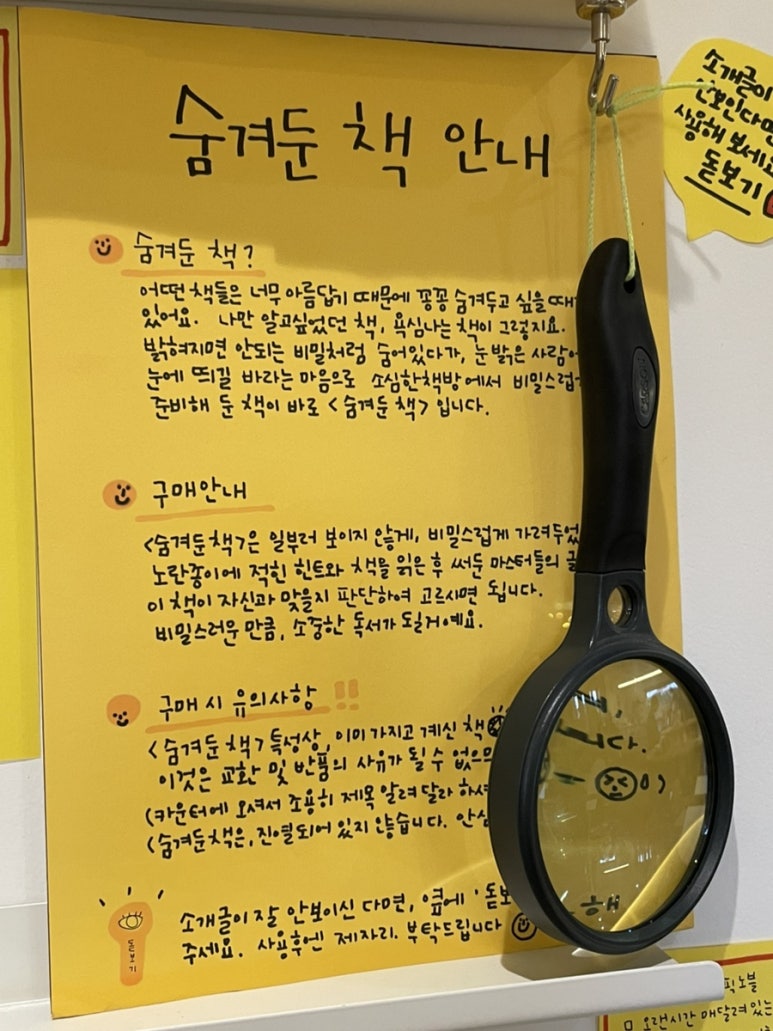 숨겨둔 책 안내
숨겨둔 책?
어떤 책들은 너무 아름답기 때문에 꽁꽁 숨겨두고 싶을 때가
있어요. 나만 알고싶었던 책, 욕심나는 책이 그렇지요.
밝혀지면 안되는 비밀처럼 숨어있다가, 눈 밝은
눈에 띄길 바라는 마음으로 소심한책방에서
준비해 둔 책이 바로 <숨겨둔 책> 입니다.
구매안내
<숨겨둔책>은 일부러 보이지 않게, 비밀스럽게
노란종이에 적힌 힌트와 책을 읽은 후 써둔 마스터들의
이 책이 자신과 맞을지 판단하여 고르시면 됩니다.
비밀스러운 만큼, 소중한 독서가 되실거예요.
구매 시 유의사항 !!
<숨겨둔 책> 특성상, 이미 가지고 계신 책
이것은 교환 및 반품의 사유가 될 수
(카운터에 오셔서 조용히 제목 알려달라
(숨겨둔책은, 진열되어 있지 않습니다.
돋보기
소개글이 잘 안보이신 다면, 옆에
주세요. 사용후엔 제자리. 부탁드립니다
소개글이
안보인다면
사용해 보세요
돋보기
OXO
픽노블
오랜시간 매달려 있는